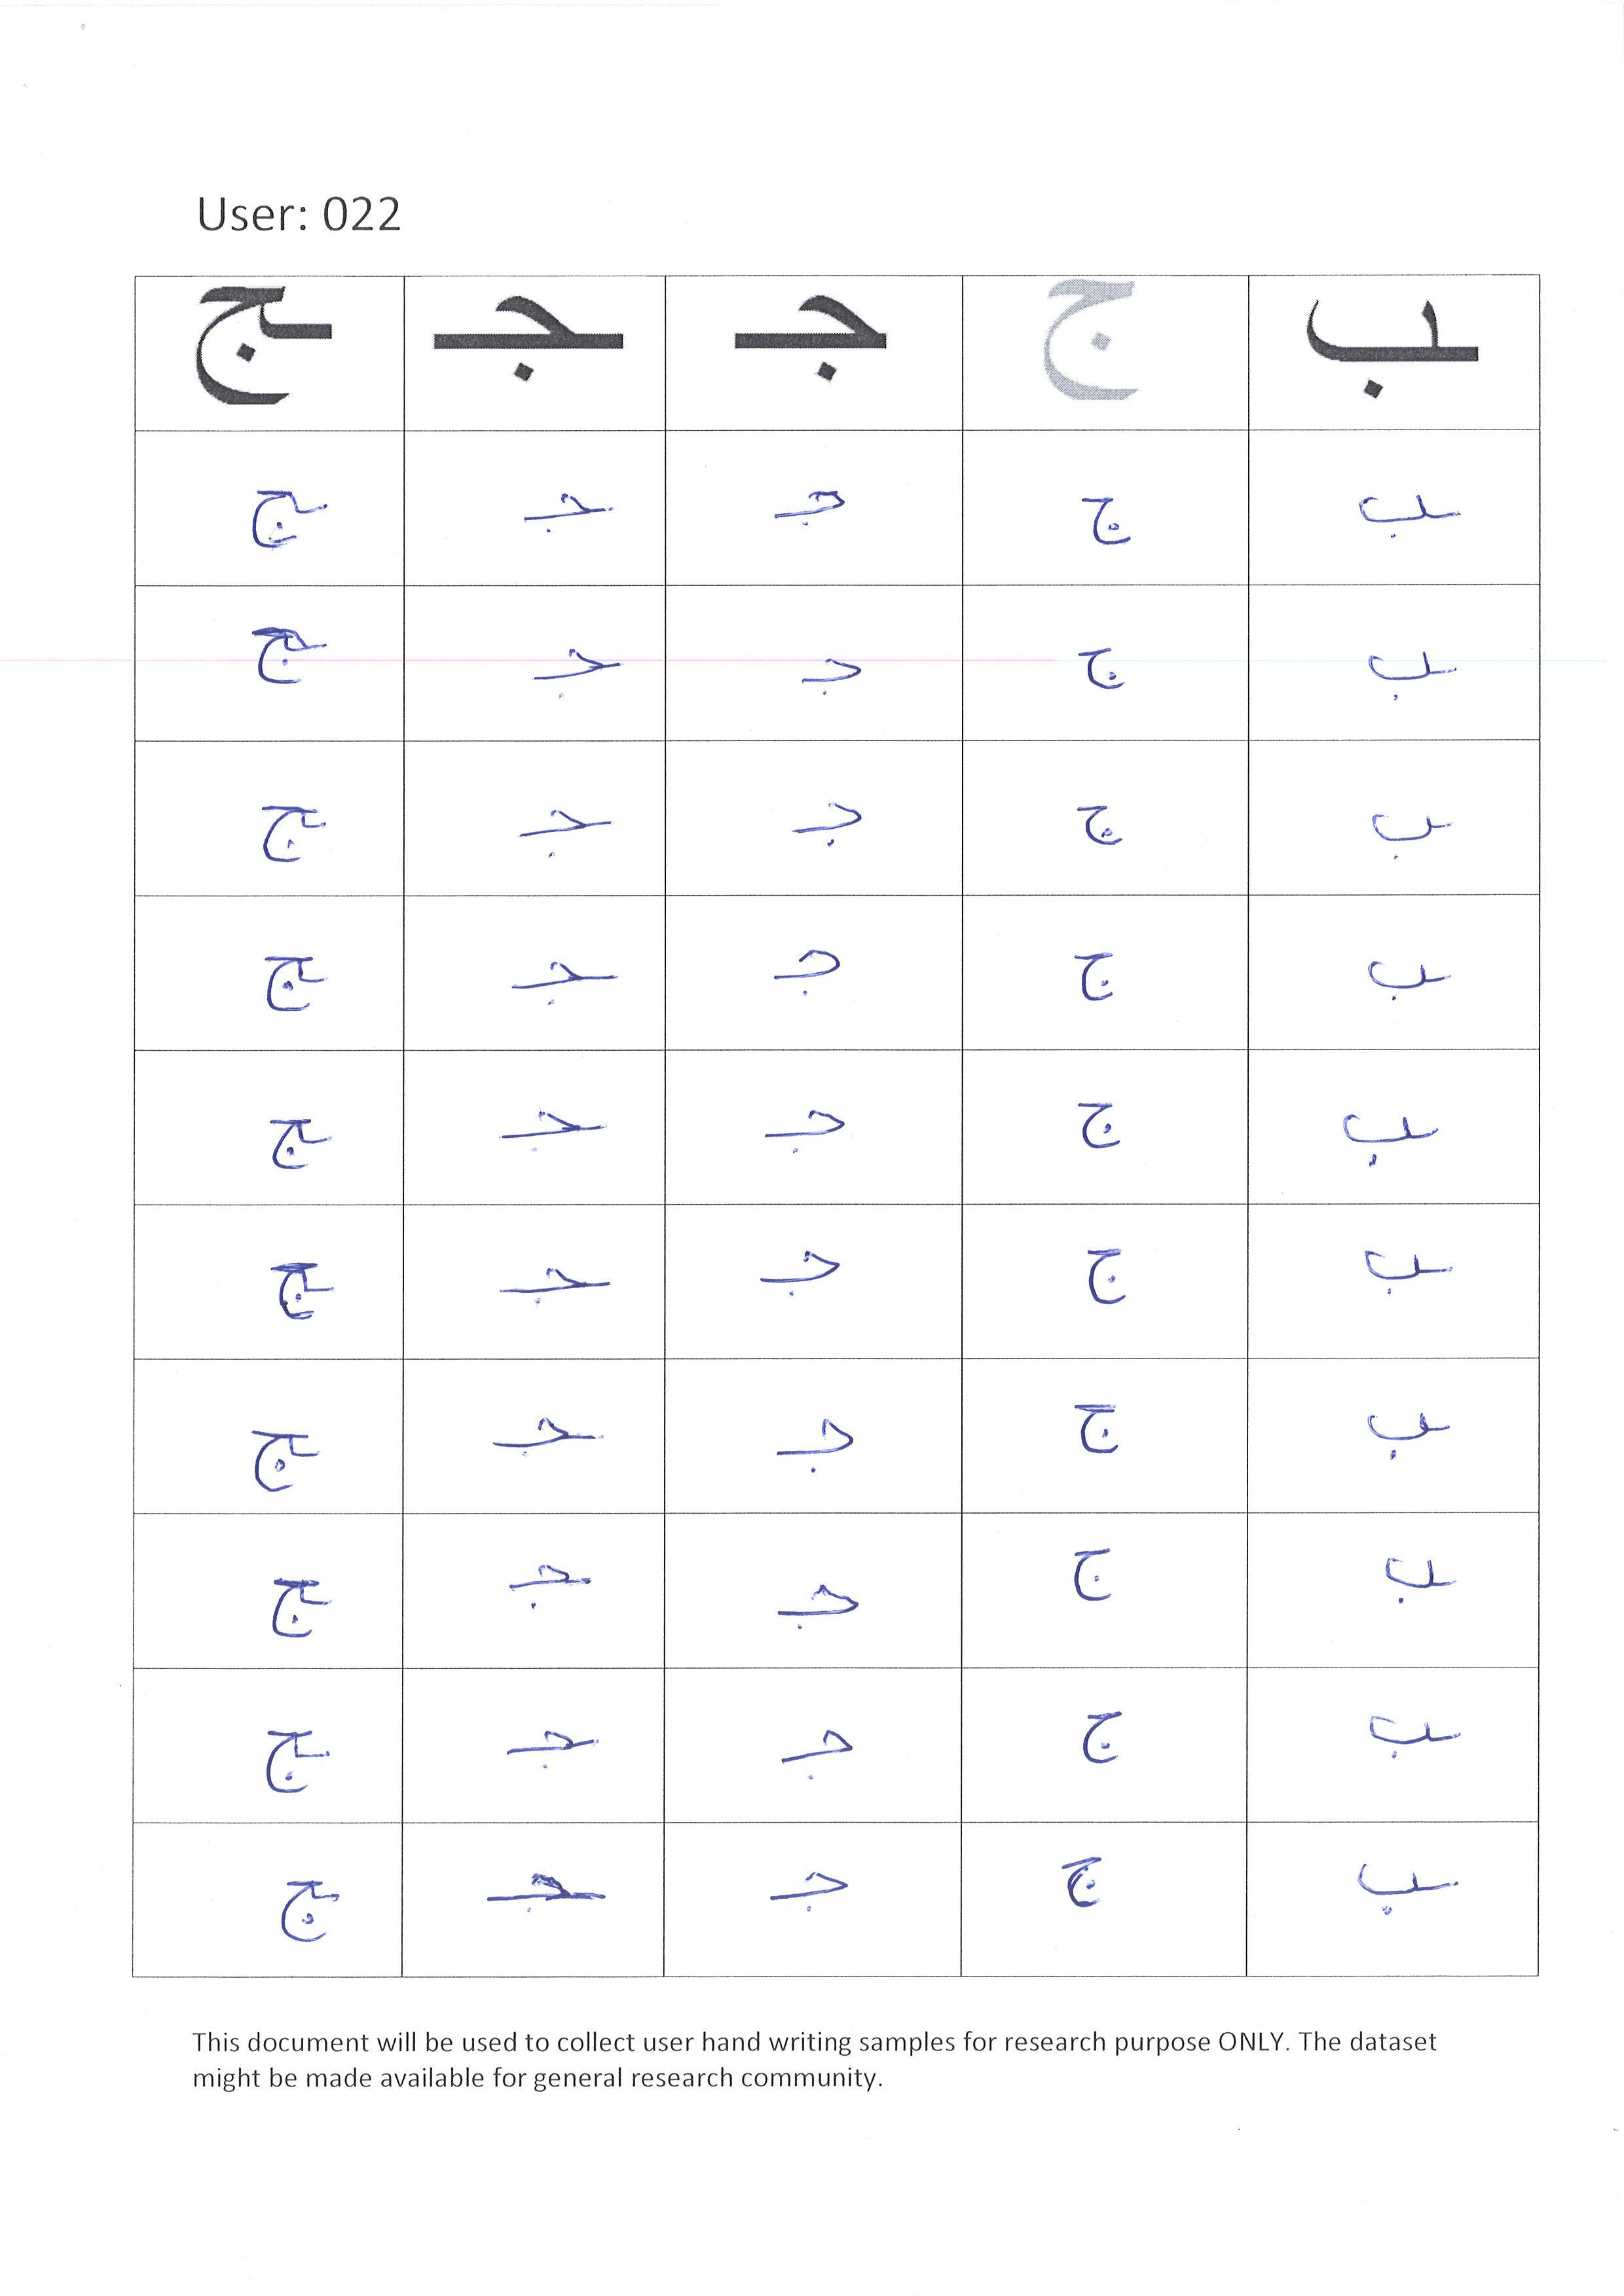 User: 022
ـب ج جـ ـجـ ـج
ـب ج جـ ـجـ ـج
ـب ج جـ ـجـ ـج
ـب ج جـ ـجـ ـج
ـب ج جـ ـجـ ـج
ـب ج جـ ـجـ ـج
ـب ج جـ ـجـ ـج
ـب ج جـ ـجـ ـج
ـب ج جـ ـجـ ـج
ـب ج جـ ـجـ ـج
ـب ج جـ ـجـ ـج
This document will be used to collect user hand writing samples for research purpose ONLY. The dataset
might be made available for general research community.